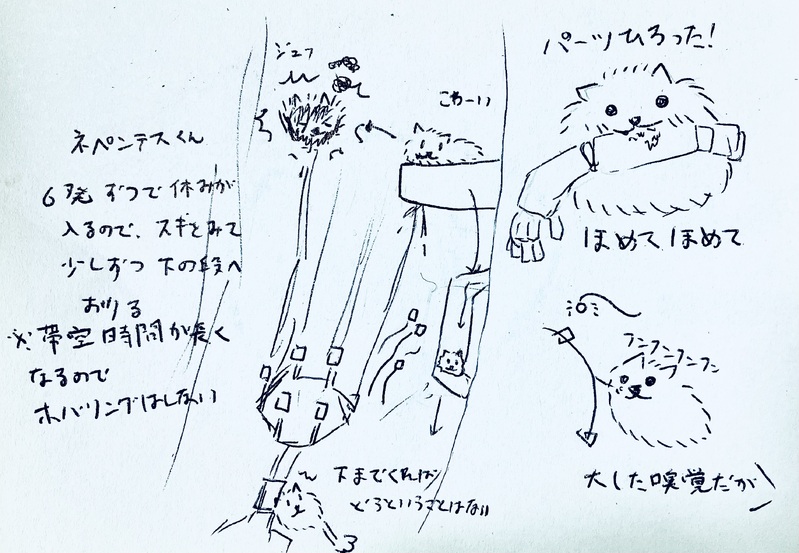 ネペンテスくん
6発ずつで休みが
入るので、スキをみて
少しずつ下の段へ
おりる
※滞空時間が長く
なるので
ホバリングはしない
ジュッ
こわーい
下までくれば
どうということはない
パーツひろった!
ほめてほめて
フンフンフンフン
大した嗅覚だがヽ